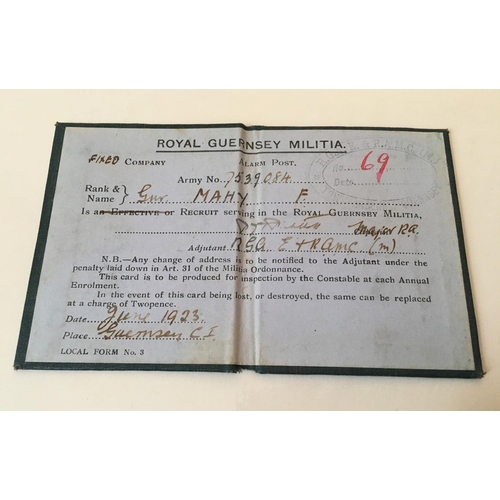 ROYAL GUERNSEY MILITIA.
FIXED COMPANY ALARM POST.
No. 69
Army No. 7539084
Date
Rank & Name } Gnr. MAHY F.
Is an Effective or RECRUIT serving in the ROYAL GUERNSEY MILITIA,
Major RA.
Adjutant. RGA E & RAMC (m)
N.B.—Any change of address is to be notified to the Adjutant under the
penalty laid down in Art. 31 of the Militia Ordonnance.
This card is to be produced for inspection by the Constable at each Annual
Enrolment.
In the event of this card being lost, or destroyed, the same can be replaced
at a charge of Twopence.
Date June 1923.
Place Guernsey C.I.
LOCAL FORM No. 3